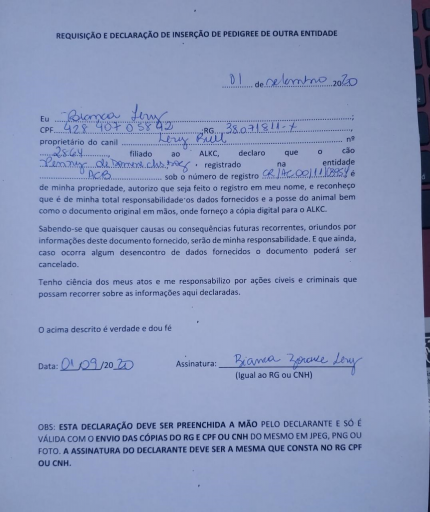 REQUISIÇÃO E DECLARAÇÃO DE INSERÇÃO DE PEDIGREE DE OUTRA ENTIDADE
01 de setembro 2020
Eu Bianca Lery;
CPF 428 907 058 42, RG 38.071811-x,
proprietário do canil Lery Bull nº
2864, filiado ao ALKC, declaro que o cão
, registrado na entidade
ACB sob o número de registro é
de minha propriedade, autorizo que seja feito o registro em meu nome, e reconheço
que é de minha total responsabilidade os dados fornecidos e a posse do animal bem
como o documento original em mãos, onde forneço a cópia digital para o ALKC.
Sabendo-se que quaisquer causas ou consequências futuras recorrentes, oriundos por
informações deste documento fornecido, serão de minha responsabilidade. E que ainda,
caso ocorra algum desencontro de dados fornecidos o documento poderá ser
cancelado.
Tenho ciência dos meus atos e me responsabilizo por ações cíveis e criminais que
possam recorrer sobre as informações aqui declaradas.
O acima descrito é verdade e dou fé
Data: 01/09/2020 Assinatura: Bianca Lery
(Igual ao RG ou CNH)
OBS: ESTA DECLARAÇÃO DEVE SER PREENCHIDA A MÃO PELO DECLARANTE E SÓ É
VÁLIDA COM O ENVIO DAS CÓPIAS DO RG E CPF OU CNH DO MESMO EM JPEG, PNG OU
FOTO. A ASSINATURA DO DECLARANTE DEVE SER A MESMA QUE CONSTA NO RG CPF
OU CNH.